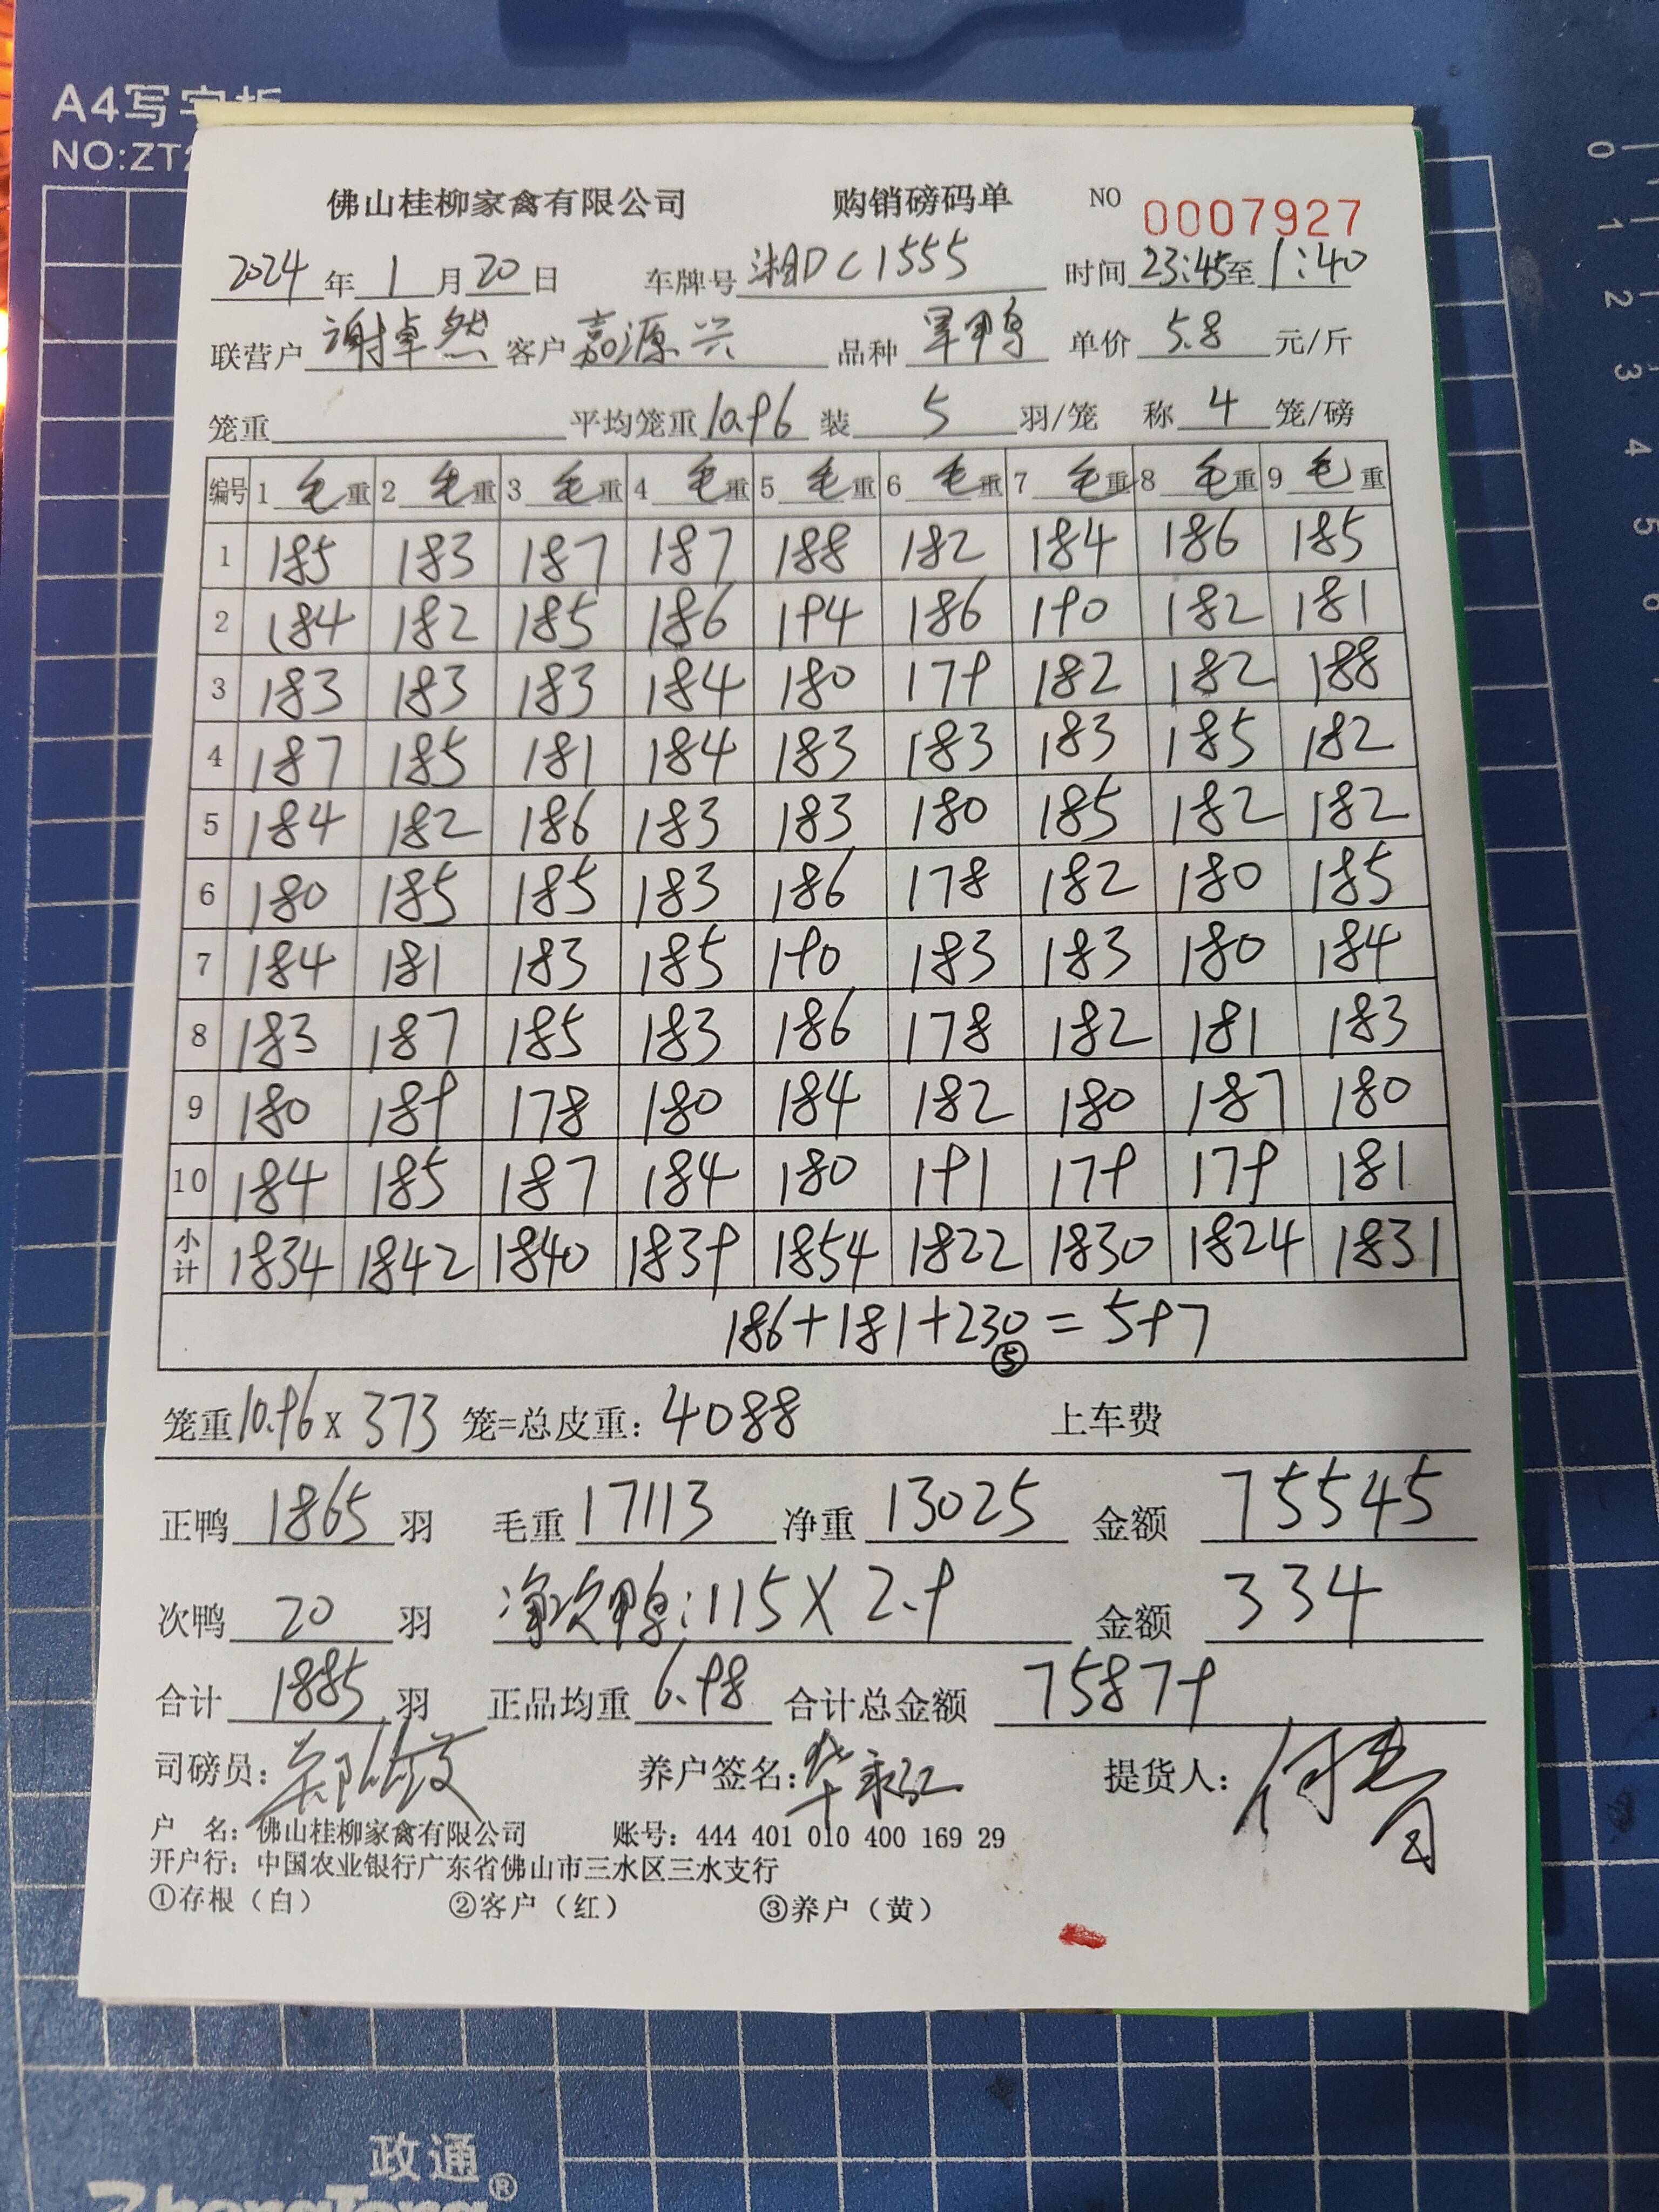 A4写字板
NO:ZT2
佛山桂柳家禽有限公司 购销磅码单 NO 0007927
2024年1月20日 车牌号 湘DC1555 时间 23:45至1:40
联营户 谢卓然 客户 嘉源兴 品种 旱鸭 单价 5.8 元/斤
笼重 平均笼重 10.96 装 5 羽/笼 称 4 笼/磅
编号 1 毛重 2 毛重 3 毛重 4 毛重 5 毛重 6 毛重 7 毛重 8 毛重 9 毛重
1 185 183 187 187 188 182 184 186 185
2 184 182 185 186 194 186 190 182 181
3 183 183 183 184 180 179 182 182 188
4 187 185 181 184 183 183 183 185 182
5 184 182 186 183 183 180 185 182 182
6 180 185 185 183 186 178 182 180 185
7 184 181 183 185 190 183 183 180 184
8 183 187 185 183 186 178 182 181 183
9 180 189 178 180 184 182 180 187 180
10 184 185 187 184 180 191 179 179 181
小计 1834 1842 1840 1839 1854 1822 1830 1824 1831
186+181+230=597
⑤
笼重10.96x 373 笼=总皮重: 4088 上车费
正鸭 1865 羽 毛重 17113 净重 13025 金额 75545
次鸭 20 羽 净次鸭:115X2.9 金额 334
合计 1885 羽 正品均重 6.98 合计总金额 75879
司磅员: 养户签名: 提货人:
户 名: 佛山桂柳家禽有限公司 账号: 444 401 010 400 169 29
开户行: 中国农业银行广东省佛山市三水区三水支行
①存根(白) ②客户(红) ③养户(黄)
0
1
2
3
4
5
6
政通
ZhengTong®